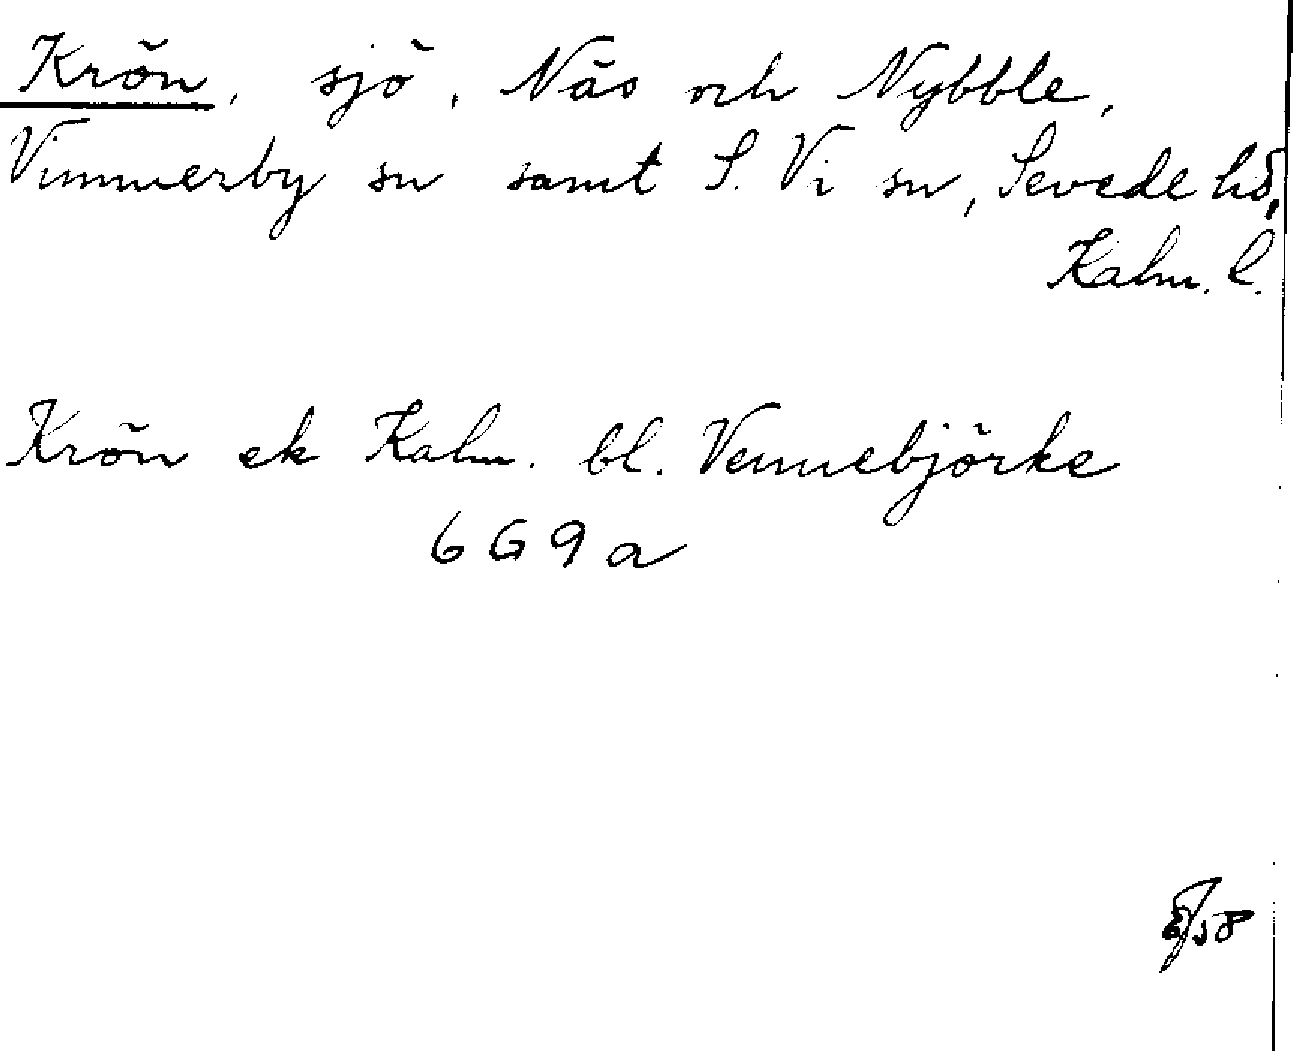 Krön, sjö, Näs och Nybble,
Vimmerby sn samt S. Vi sn, Sevede hd,
Kalm. l.
Krön ek Kalm. bl. Vennebjörke
669a